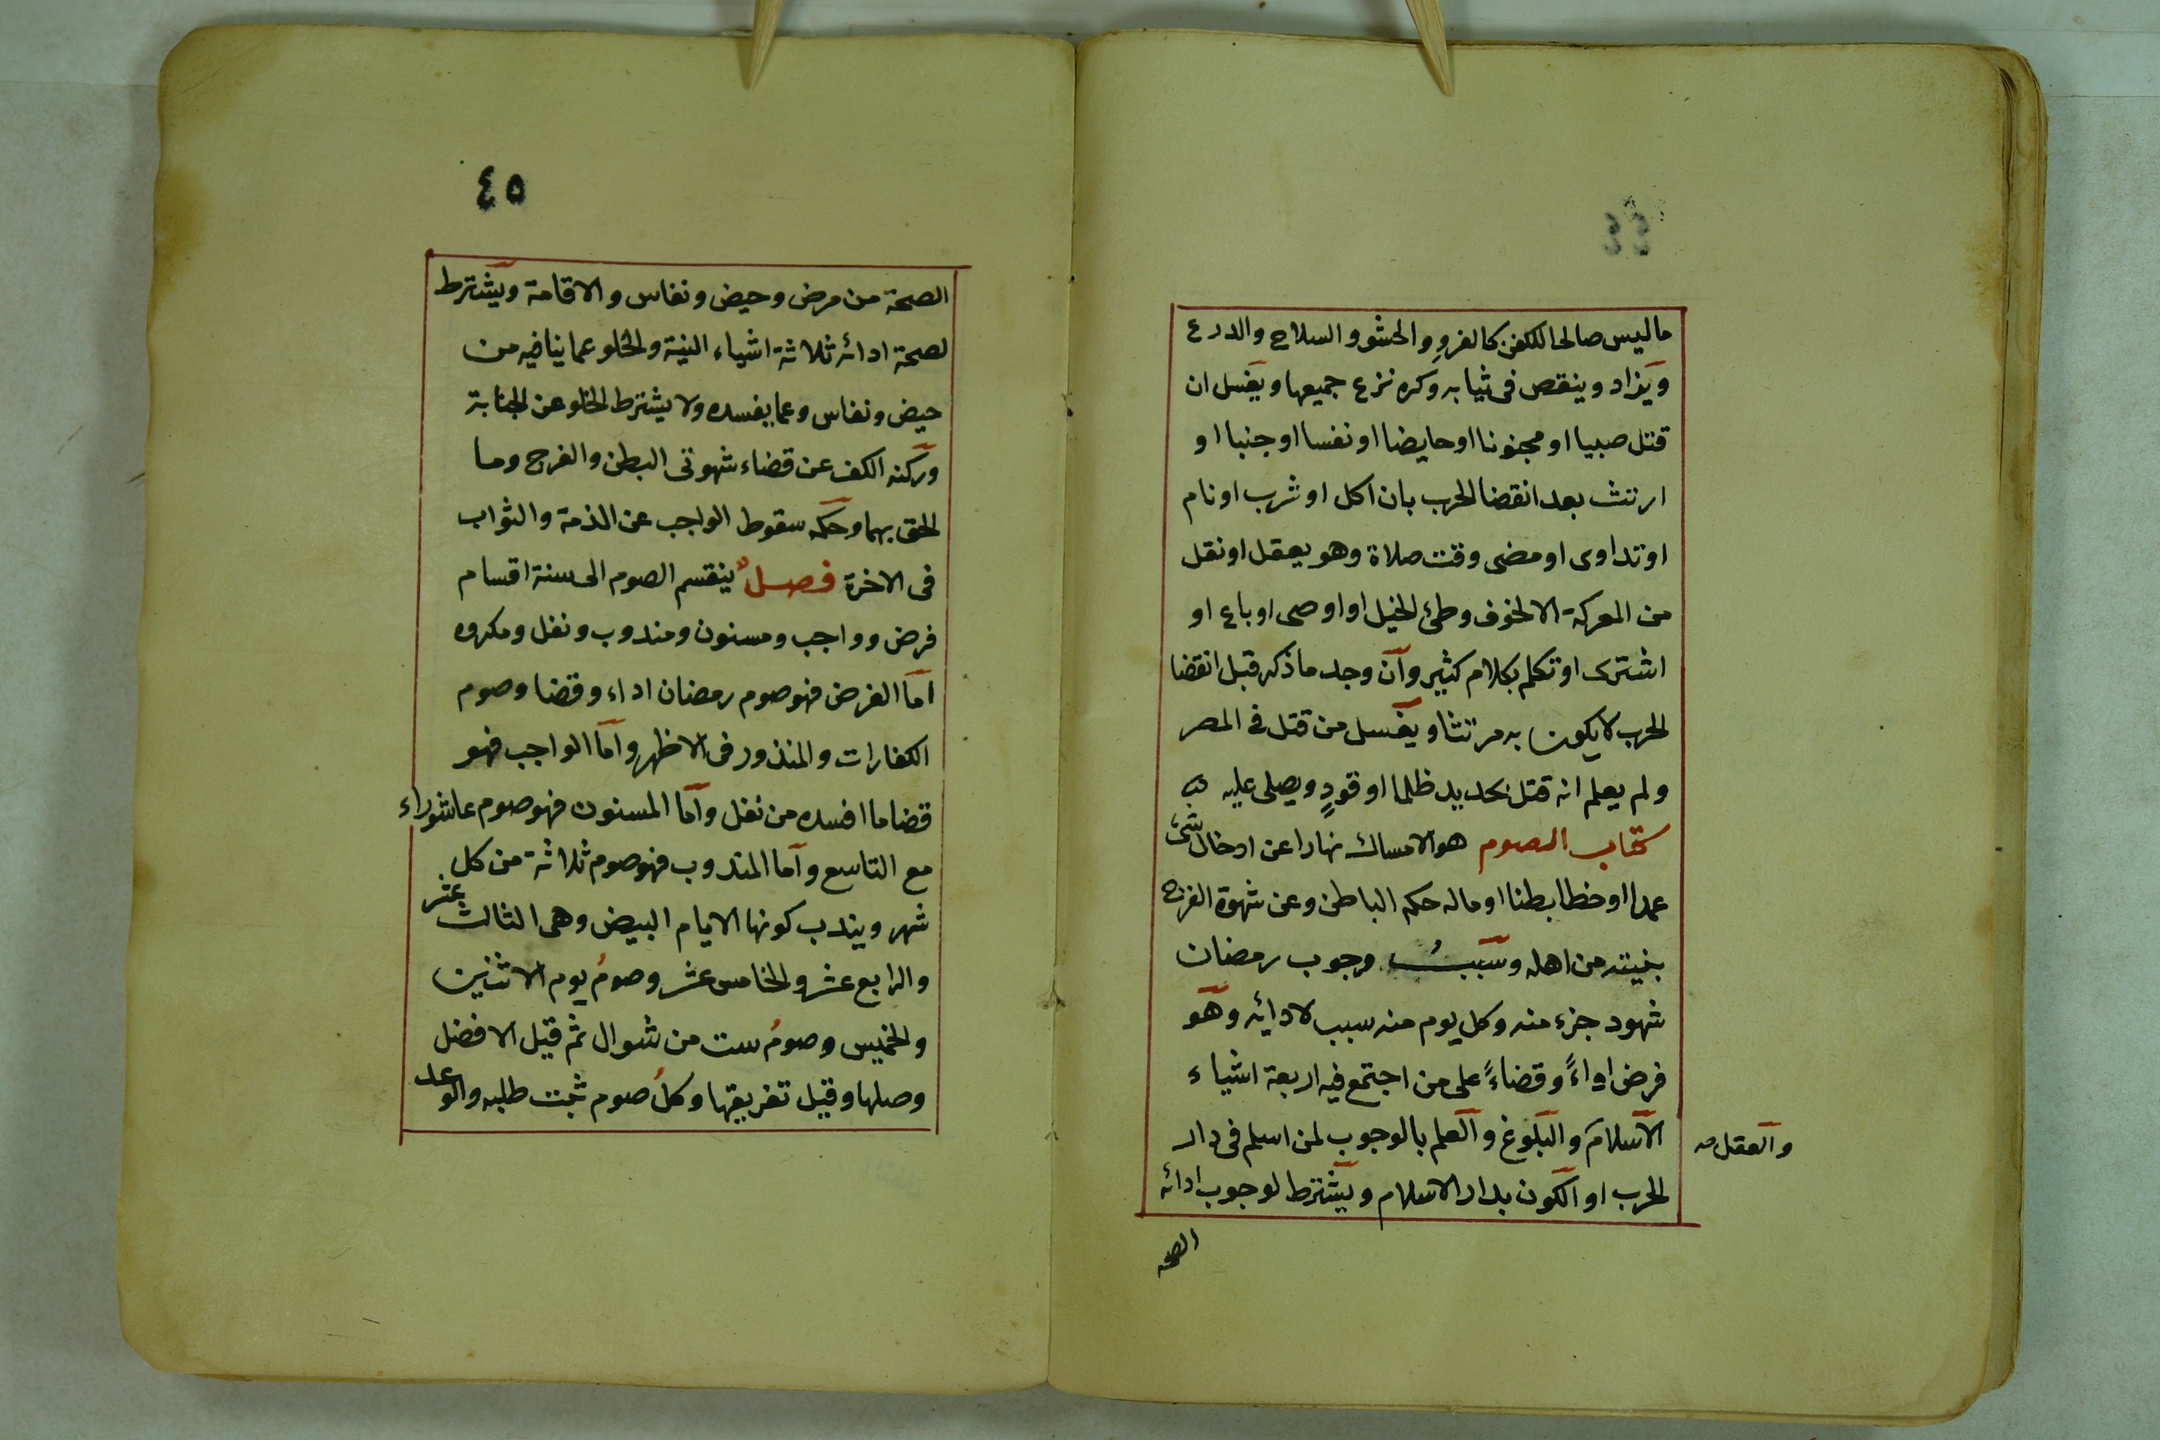 ٤٤
ما ليس صالحا للكفن كالفروِ والحشو والسلاح والدرع
ويزاد وينقص فى ثيابه وكره نزع جميعها ويغسل ان
قتل صبيا او مجنونا او حايضا او نفسا او جنبا او
ارتث بعد انقضا الحرب بان اكل او شرب او نام
او تداوى او مضى وقت صلاة وهو يعقل او نقل
من المعركة الا لخوف وطئ الخيل او اوصى او باع او
اشترى او تكلم بكلام كثير وان وجد ما ذكر قبل انقضا
الحرب لا يكون به مرتثا ويغسل من قتل فى المصر
ولم يعلم انه قتل بحديد ظلما او قودٍ ويصلى عليه
كتاب الصوم هو الامساك نهارا عن ادخال شئ
عمدا او خطا بطنا او ماله حكم الباطن وعن شهوة الفرج
بنيته من اهله وسببُ وجوب رمضان
شهود جزء منه وكل يوم منه سبب لادائه وهو
فرض اداءً وقضاءً على من اجتمع فيه اربعة اشياء
الاسلام والبلوغ والعلم بالوجوب لمن اسلم فى دار
والعقل صح
الحرب او الكون بدار الاسلام ويشترط لوجوب ادائه
الصحة
٤٥
الصحة من مرض وحيض ونفاس والاقامة ويشترط
لصحة ادائه ثلاثة اشياء النية والخلو عما ينافيه من
حيض ونفاس وعما يفسده ولا يشترط الخلو عن الجنابة
وركنه الكف عن قضاء شهوتى البطن والفرج وما
الحق بهما وحكمه سقوط الواجب عن الذمة والثواب
فى الاخرة فصل ينقسم الصوم الى ستة اقسام
فرض وواجب ومسنون ومندوب ونفل ومكروه
اما الفرض فهو صوم رمضان اداء وقضا وصوم
الكفارات والمنذور فى الاظهر واما الواجب فهو
قضا ما افسده من نفل واما المسنون فهو صوم عاشوراء
مع التاسع واما المندوب فهو صوم ثلاثة من كل
شهر ويندب كونها الايام البيض وهى الثالث عشر
والرابع عشر والخامس عشر وصومُ يوم الاثنين
والخميس وصومُ ست من شوال ثم قيل الافضل
وصلها وقيل تفريقها وكلُ صوم ثبت طلبه والوعد